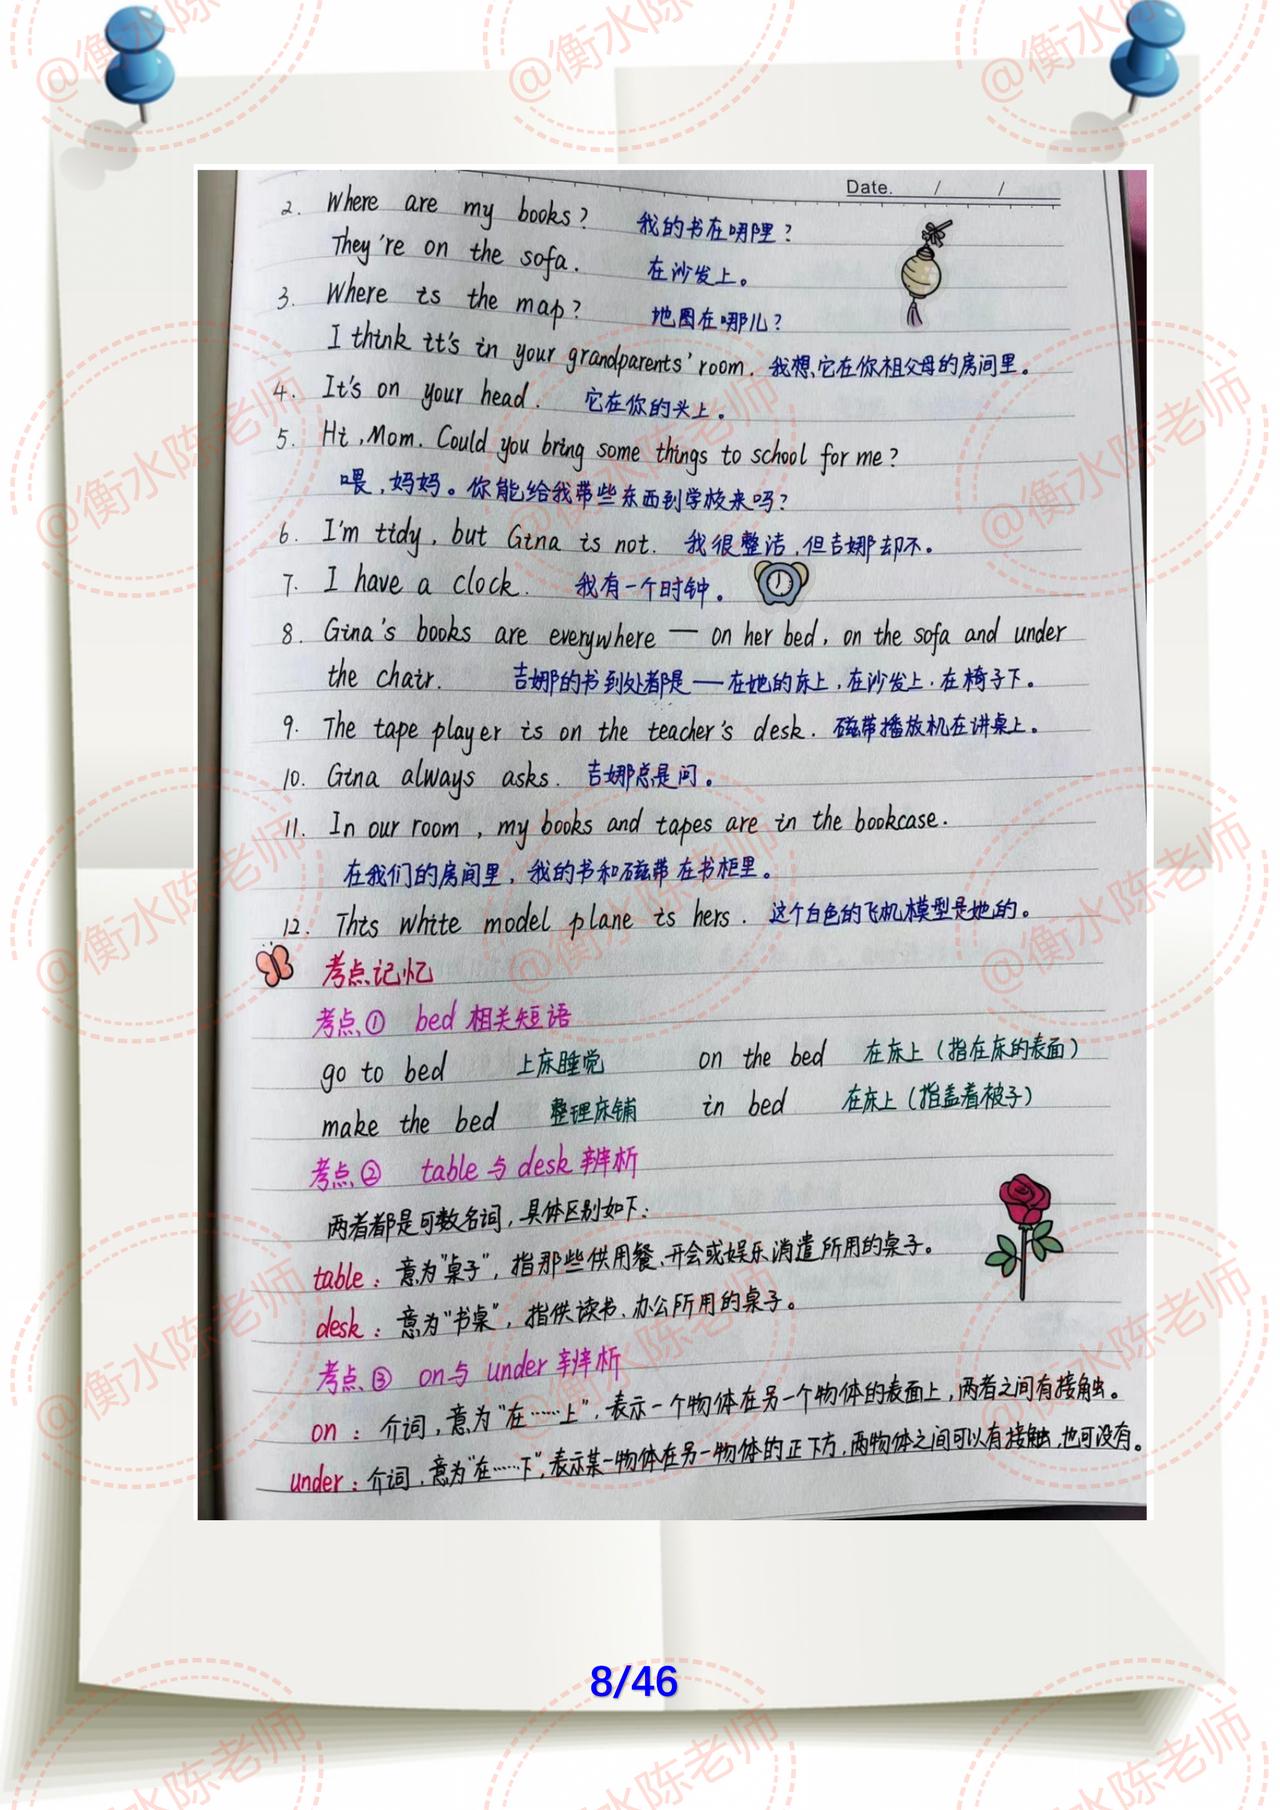 Date. / /
2. Where are my books? 我的书在哪里?
They're on the sofa. 在沙发上。
3. Where is the map? 地图在哪儿?
I think it's in your grandparents' room. 我想,它在你祖父母的房间里。
4. It's on your head. 它在你的头上。
5. Hi, Mom. Could you bring some things to school for me?
喂,妈妈。你能给我带些东西到学校来吗?
6. I'm tidy, but Gina is not. 我很整洁,但吉娜却不。
7. I have a clock. 我有一个时钟。
8. Gina's books are everywhere — on her bed, on the sofa and under
the chair. 吉娜的书到处都是——在她的床上,在沙发上.在椅子下。
9. The tape player is on the teacher's desk. 磁带播放机在讲桌上。
10. Gina always asks. 吉娜总是问。
11. In our room, my books and tapes are in the bookcase.
在我们的房间里,我的书和磁带在书柜里。
12. This white model plane is hers. 这个白色的飞机模型是她的。
考点记忆
考点① bed 相关短语
go to bed 上床睡觉 on the bed 在床上(指在床的表面)
make the bed 整理床铺 in bed 在床上(指盖着被子)
考点② table 与 desk 辨析
两者都是可数名词,具体区别如下:
table: 意为"桌子",指那些供用餐、开会或娱乐消遣所用的桌子。
desk: 意为"书桌",指供读书、办公所用的桌子。
考点③ on与 under 辨析
on: 介词,意为"在……上",表示一个物体在另一个物体的表面上,两者之间有接触。
under: 介词,意为"在……下",表示某一物体在另一物体的正下方,两物体之间可以有接触,也可没有。
8/46
@衡水陈老师